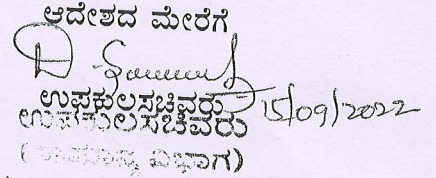 ಆದೇಶದ ಮೇರೆಗೆ
ಉಪಕುಲಸಚಿವರು 15/09/2022
ಉಪಕುಲಸಚಿವರು
ವಿಭಾಗ)